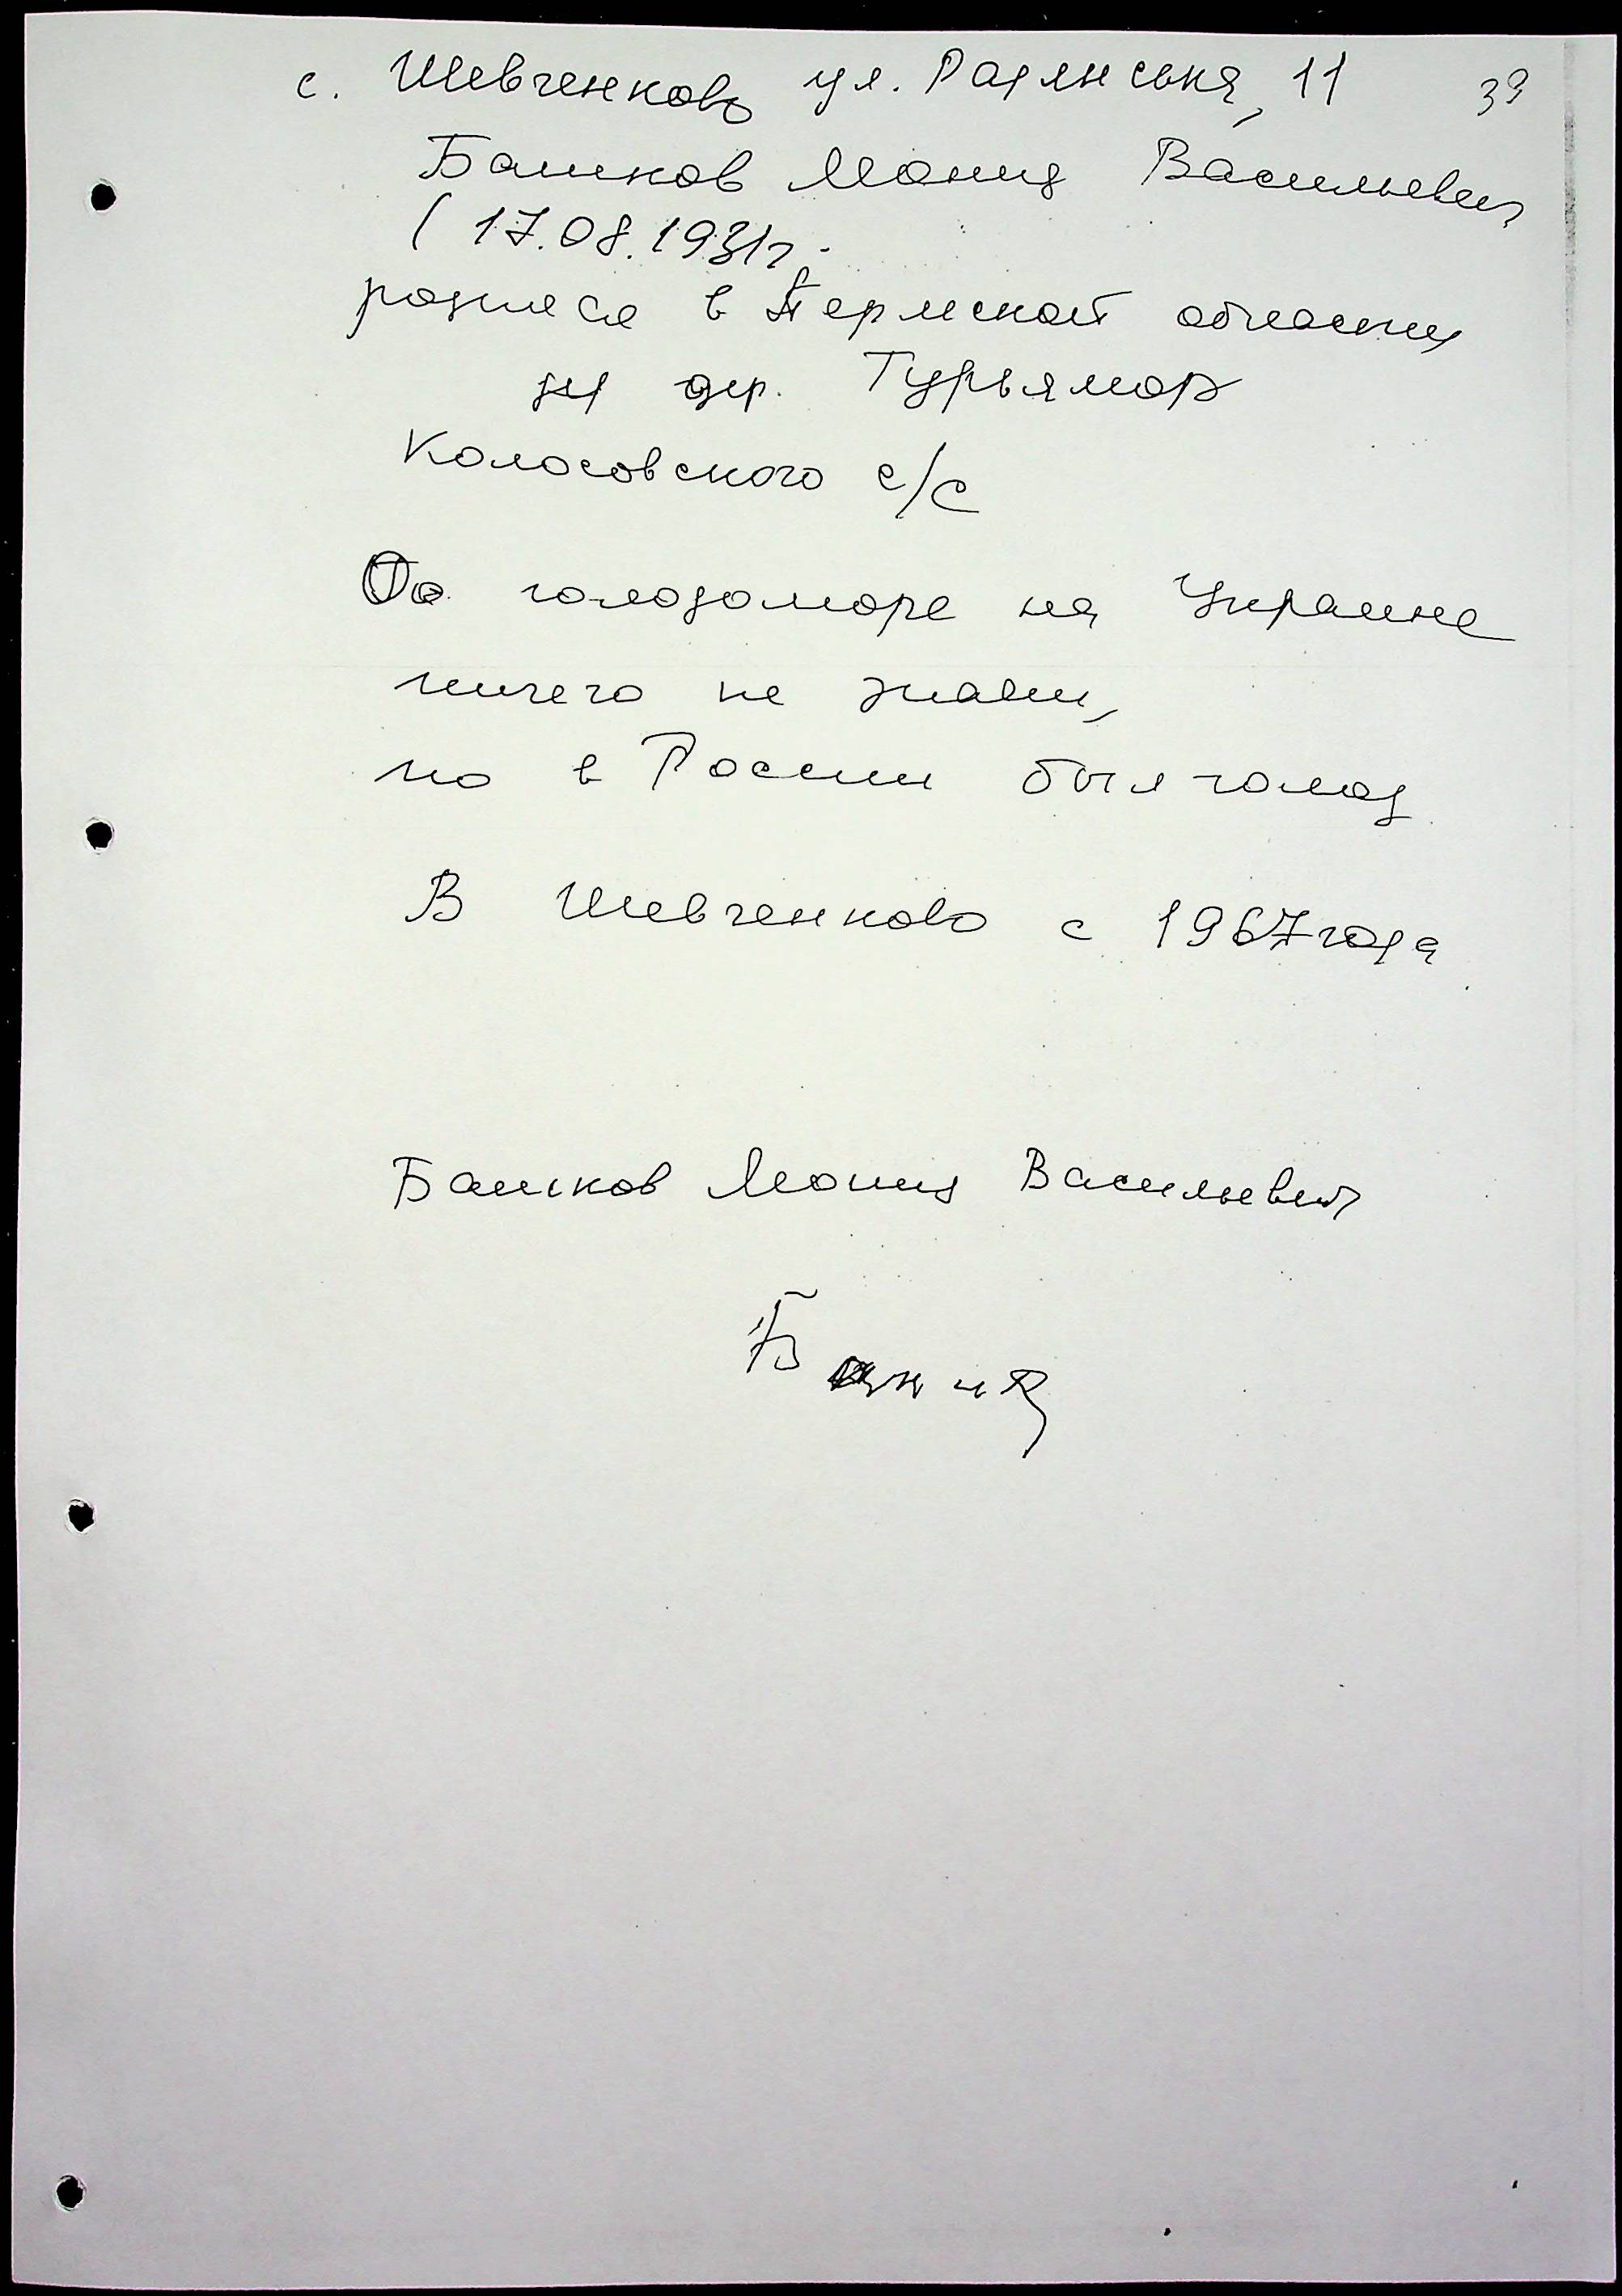 с. Шевченково ул. Радянська, 11 39
Башков Леонид Васильевич
( 17.08.1931г.
родился в Пермской области
дер. Гурьямор
Колосовского с/с
О голодоморе на Украине
ничего не знали,
но в России был голод
В Шевченково с 1967 года
Башков Леонид Васильевич